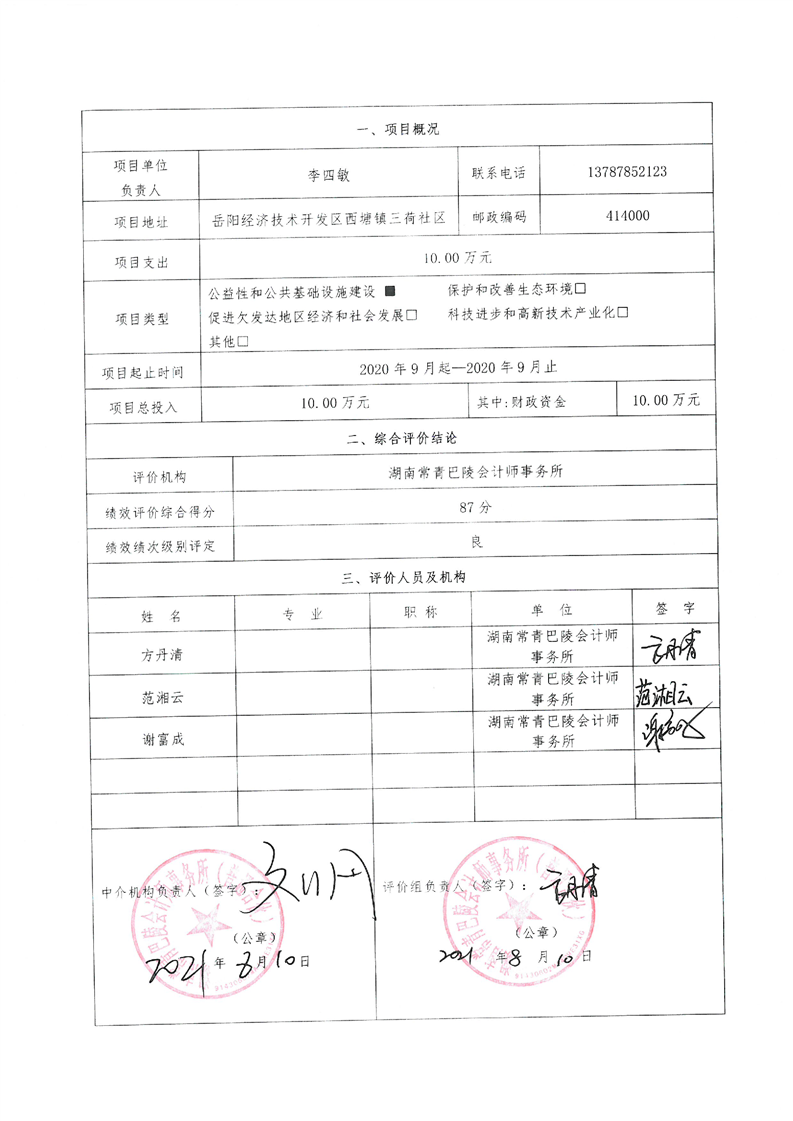 一、项目概况
项目单位
负责人
李四敏
联系电话
13787852123
项目地址
岳阳经济技术开发区西塘镇三荷社区
邮政编码
414000
项目支出
10.00万元
项目类型
公益性和公共基础设施建设 ■ 保护和改善生态环境□
促进欠发达地区经济和社会发展□ 科技进步和高新技术产业化□
其他□
项目起止时间
2020年9月起—2020年9月止
项目总投入
10.00万元
其中:财政资金
10.00万元
二、综合评价结论
评价机构
湖南常青巴陵会计师事务所
绩效评价综合得分
87分
绩效绩次级别评定
良
三、评价人员及机构
姓 名 专 业 职 称 单 位 签 字
方丹清
湖南常青巴陵会计师
事务所
方丹清
范湘云
湖南常青巴陵会计师
事务所
范湘云
谢富成
湖南常青巴陵会计师
事务所
中介机构负责人(签字):
(公章)
2021年8月10日
评价组负责人(签字):方丹清
(公章)
2021年8月10日